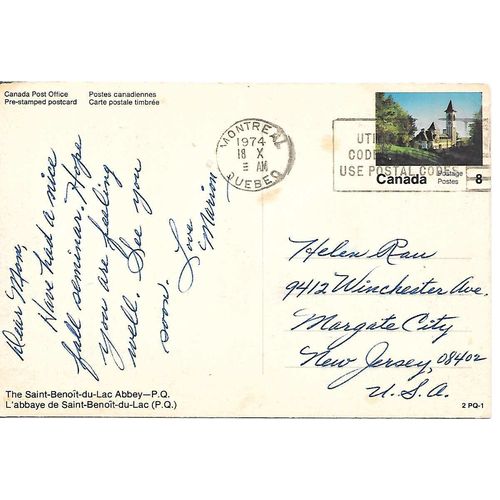 Canada Post Office
Pre-stamped postcard
Postes canadiennes
Carte postale timbrée
MONTREAL
1974
18 X
AM
QUEBEC
UTI
CODE
USE POSTAL CODES
Canada
Postage
Postes
8
Dear Mom,
Have had a nice
fall seminar. Hope
you are feeling
well. See you
soon.
Love
Marion
Helen Rau
9412 Winchester Ave.
Margate City
New Jersey, 08402
U.S.A.
The Saint-Benoît-du-Lac Abbey—P.Q.
L'abbaye de Saint-Benoît-du-Lac (P.Q.)
2 PQ-1